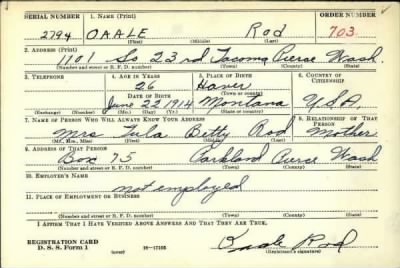 SERIAL NUMBER 1. NAME (Print) ORDER NUMBER
2794 OAALE Rod 703
(First) (Middle) (Last)
2. ADDRESS (Print)
1101 So 23rd Tacoma Pierce Wash.
(Number and street or R. F. D. number) (Town) (County) (State)
3. TELEPHONE 4. AGE IN YEARS 5. PLACE OF BIRTH 6. COUNTRY OF CITIZENSHIP
26 Haver
DATE OF BIRTH (Town or county)
June 22 1914 Montana U.S.A.
(Exchange) (Number) (Mo.) (Day) (Yr.) (State or country)
7. NAME OF PERSON WHO WILL ALWAYS KNOW YOUR ADDRESS 8. RELATIONSHIP OF THAT PERSON
Mrs Tula Betty Rod Mother
(Mr., Mrs., Miss) (First) (Middle) (Last)
9. ADDRESS OF THAT PERSON
Box 75 Parkland Pierce Wash
(Number and street or R. F. D. number) (Town) (County) (State)
10. EMPLOYER'S NAME
not employed
11. PLACE OF EMPLOYMENT OR BUSINESS
(Number and street or R. F. D. number) (Town) (County) (State)
I AFFIRM THAT I HAVE VERIFIED ABOVE ANSWERS AND THAT THEY ARE TRUE.
REGISTRATION CARD
D. S. S. Form 1 (over) 16—17105 Oaale Rod
(Registrant's signature)